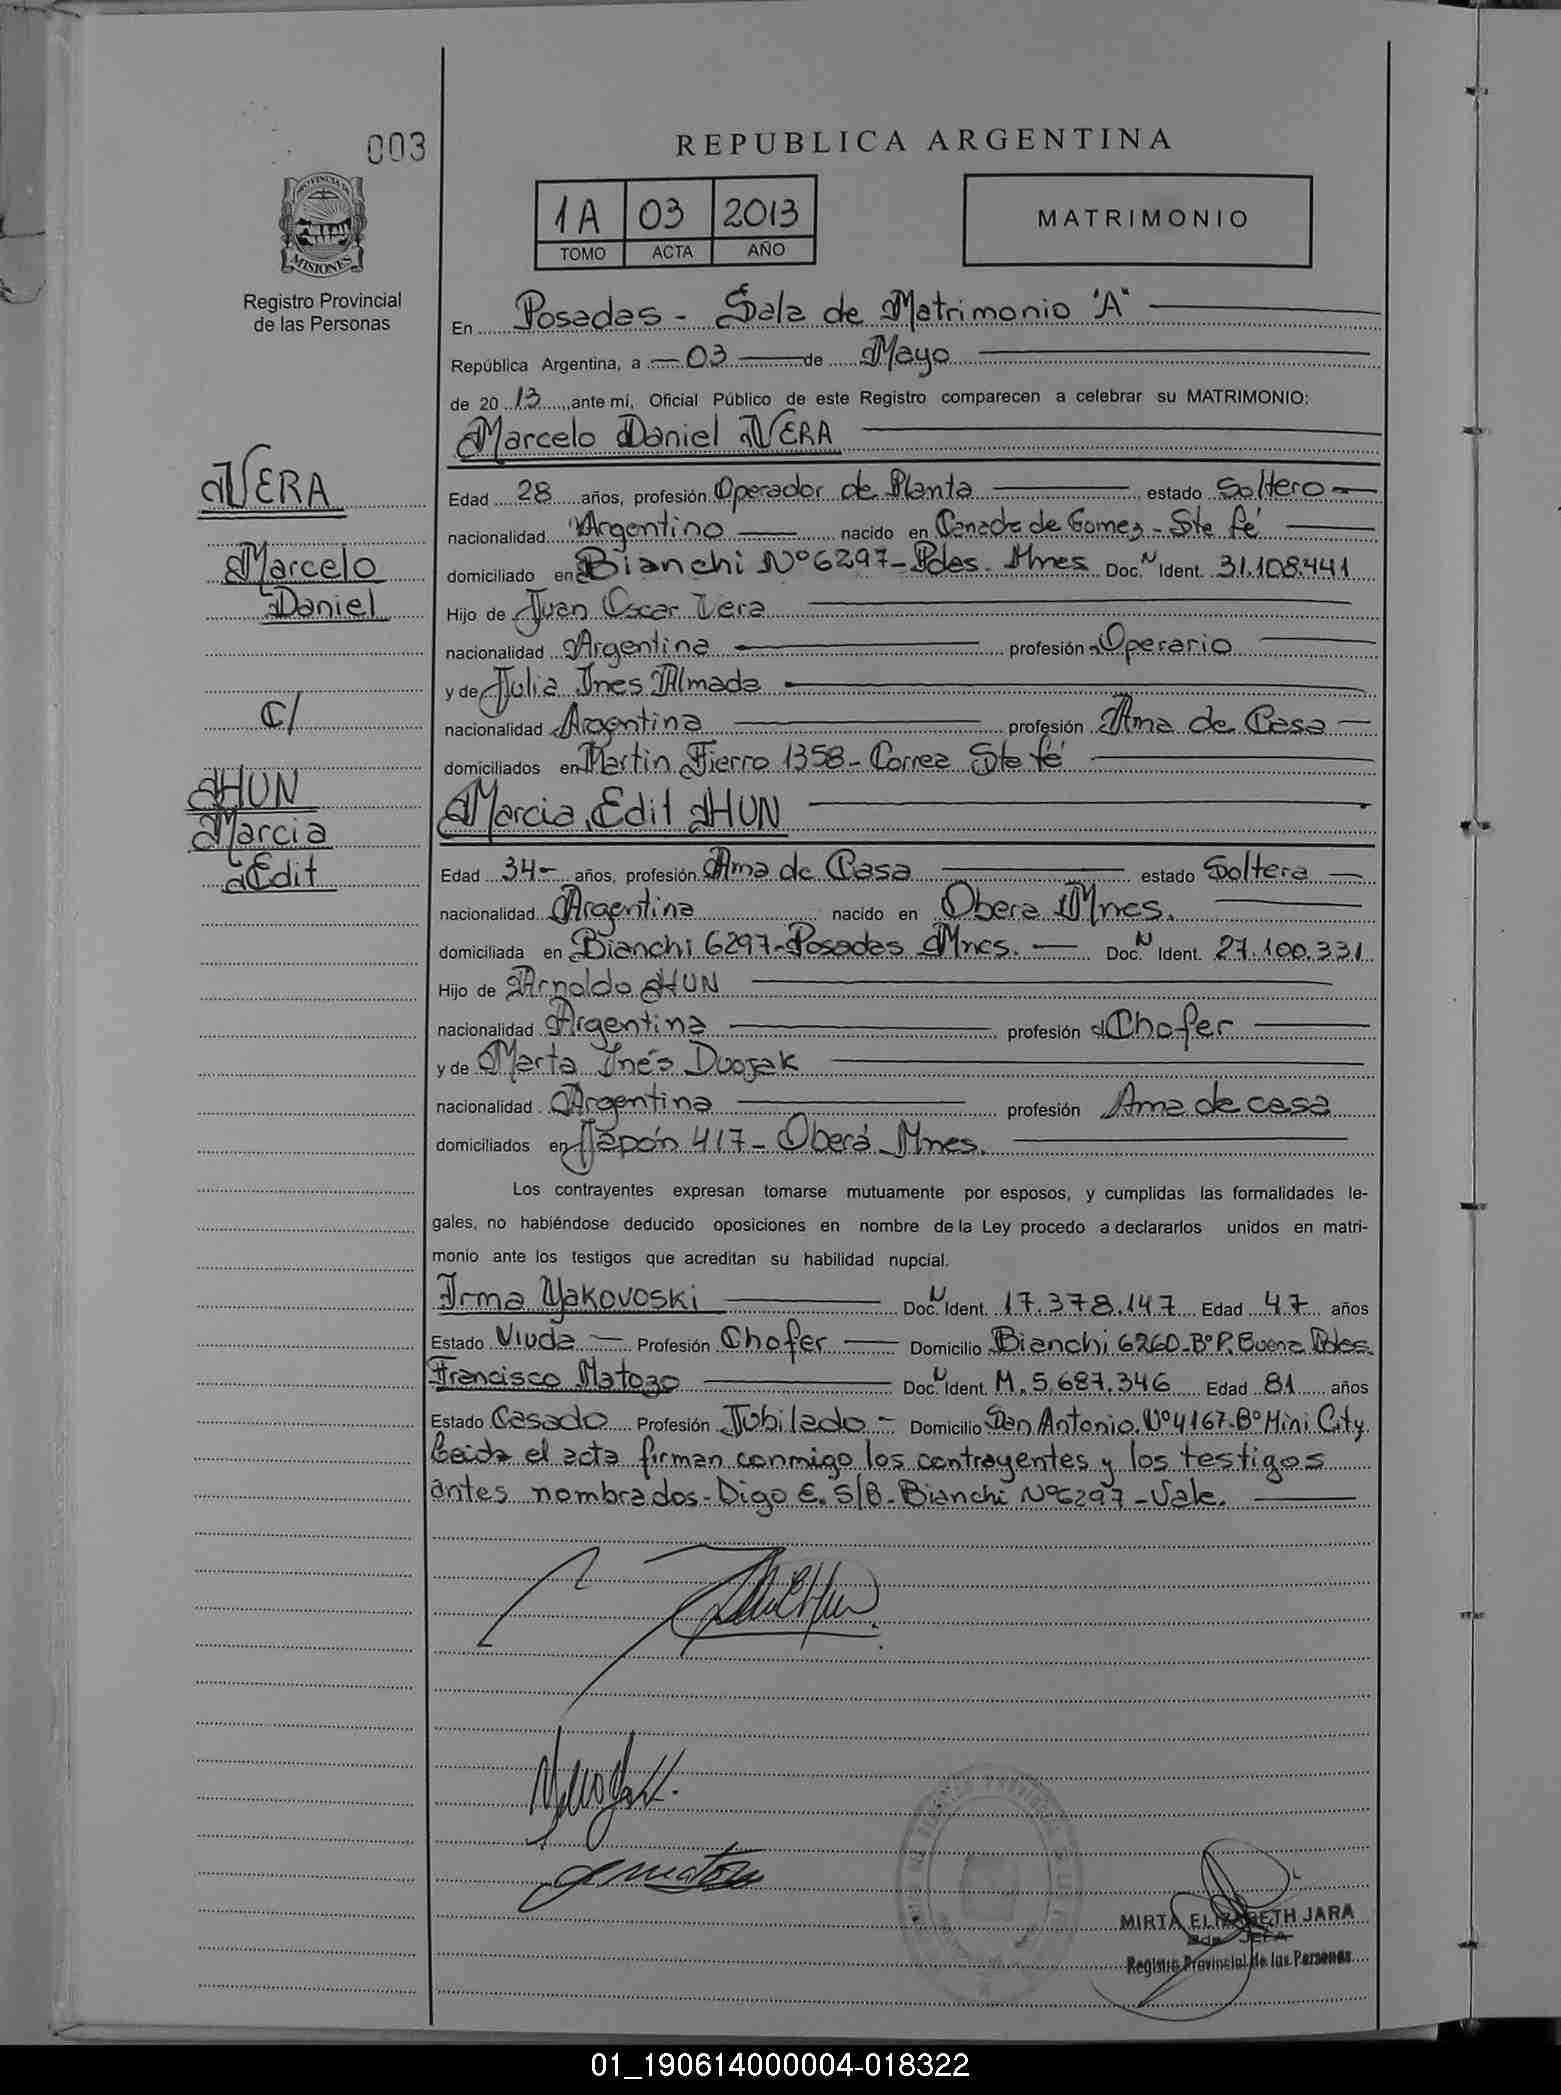 003
REPUBLICA ARGENTINA
1A 03 2013
TOMO ACTA AÑO
MATRIMONIO
PROVINCIA DE
MISIONES
Registro Provincial
de las Personas
En Posadas - Sala de Matrimonio "A"
República Argentina, a 03 de Mayo
de 20 13 ante mí, Oficial Público de este Registro comparecen a celebrar su MATRIMONIO:
Marcelo Daniel VERA
VERA
Marcelo
Daniel
C/
HUN
Marcia
Edit
Edad 28 años, profesión Operador de Planta estado Soltero
nacionalidad Argentino nacido en Canada de Gomez - Sta fé
domiciliado en Bianchi Nº 6297 - Pdas. Mnes Doc. N Ident. 31.108.441
Hijo de Juan Oscar Vera
nacionalidad Argentina profesión Operario
y de Julia Ines Almada
nacionalidad Argentina profesión Ama de Casa
domiciliados en Martin Fierro 1358 - Correa Sta fé
Marcia Edit HUN
Edad 34 - años, profesión Ama de Casa estado Soltera
nacionalidad Argentina nacido en Obera Mnes.
domiciliada en Bianchi 6297 - Posadas Mnes. Doc. N Ident. 27.100.331
Hijo de Arnoldo HUN
nacionalidad Argentina profesión Chofer
y de Marta Inés
nacionalidad Argentina profesión Ama de casa
domiciliados en Japón 417 - Oberá Mnes.
Los contrayentes expresan tomarse mutuamente por esposos, y cumplidas las formalidades le-
gales, no habiéndose deducido oposiciones en nombre de la Ley procedo a declararlos unidos en matri-
monio ante los testigos que acreditan su habilidad nupcial.
Irma Yakovoski Doc. N Ident. 17.378.147 Edad 47 años
Estado Viuda Profesión Chofer Domicilio Bianchi 6260 - Bº P. Buena Pdas.
Francisco Matozo Doc. N Ident. M. 5.687.346 Edad 81 años
Estado Casado Profesión Jubilado - Domicilio San Antonio Nº 4167 - Bº Mini City.
Leida el acta firman conmigo los contrayentes y los testigos
antes nombrados - Digo E. S/B - Bianchi Nº 6297 - Vale.
MIRTA ELIZABETH JARA
JEFA
Registro Provincial de las Personas
01_190614000004-018322